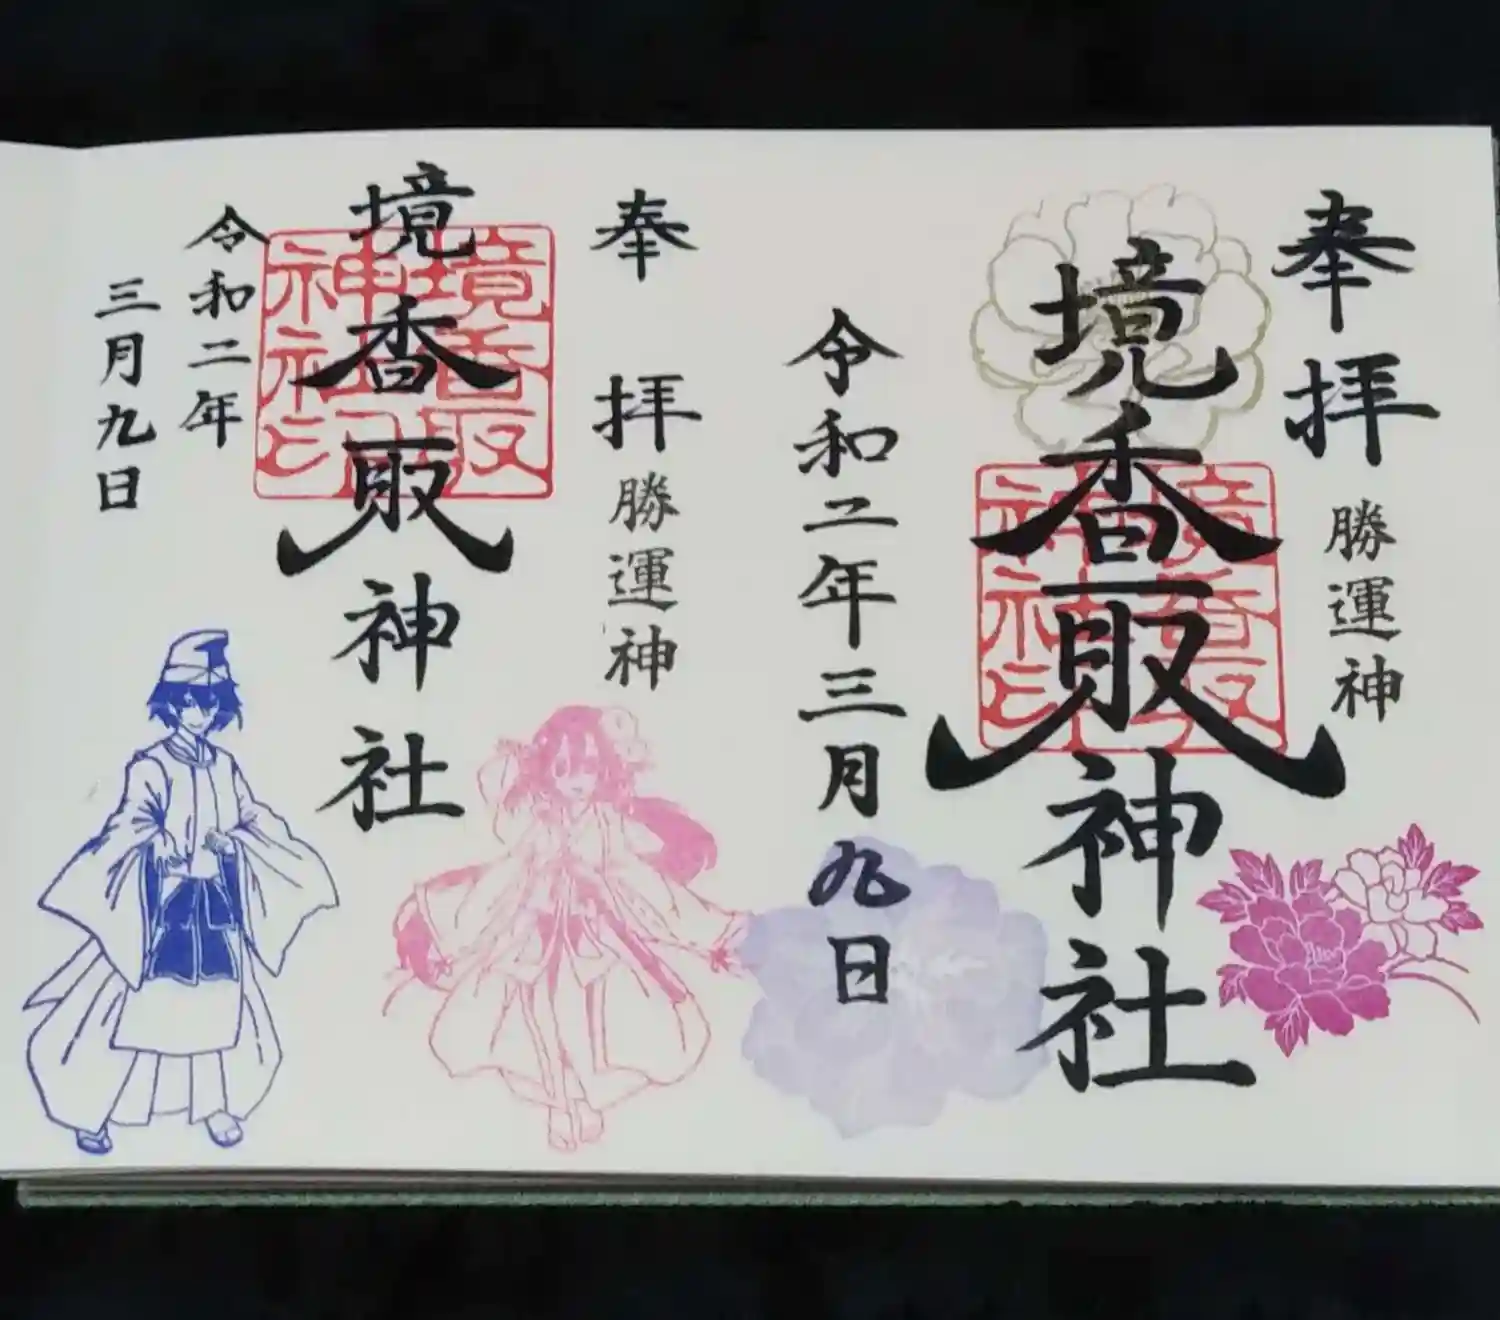 奉拝
勝運神
境香取神社
境香取神社印
令和二年三月九日
奉拝
勝運神
境香取神社
境香取神社印
令和二年
三月九日